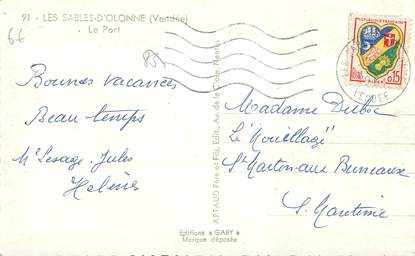 91 - LES SABLES-D'OLONNE (Vendée)
Le Port
6€
Bonnes vacances
Beau temps
Me Lesage. Jules
Helène
ARTAUD Père et Fils, Edit., Av. de la Close, Nantes
Editions « GABY »
Marque déposée
REPUBLIQUE FRANÇAISE
0,15
VENDEE
Madame Duboc
Le
St Martin aux Buneaux
S. Maritime